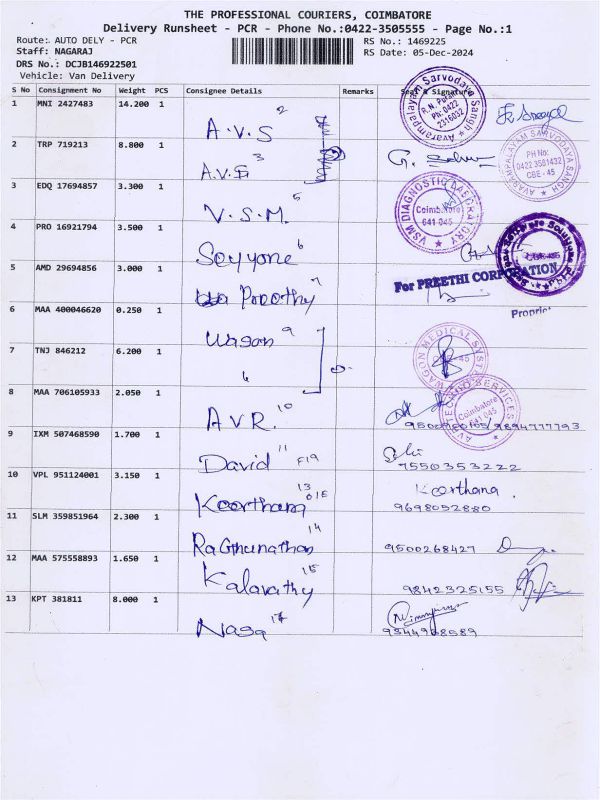 THE PROFESSIONAL COURIERS, COIMBATORE
Delivery Runsheet - PCR - Phone No.:0422-3505555 - Page No.:1
Route: AUTO DELY - PCR
RS No.: 1469225
Staff: NAGARAJ
RS Date: 05-Dec-2024
DRS No.: DCJB146922501
Vehicle: Van Delivery
S No Consignment No Weight PCS Consignee Details Remarks Seal & Signature
1 MNI 2427483 14.200 1 A.V.S 2
R.N. Puram
Ph: 0422
2316032
Avarampalayam Sarvodaya Sangh
2 TRP 719213 8.800 1 A.V.S 3
AVARAMPALAYAM SARVODAYA SANGH
PH No:
0422 3581432
CBE - 45
3 EDQ 17694857 3.300 1 V.S.M. 5
VSM DIAGNOSTIC LABORATORY
Coimbatore
641 045
4 PRO 16921794 3.500 1 6
5 AMD 29694856 3.000 1 7
For PREETHI CORPORATION
6 MAA 400046620 0.250 1 Wagon 9
7 TNJ 846212 6.200 1
WAGON MEDICAL SYSTEM
8 MAA 706105933 2.050 1 AVR. 10
SERVICES
Coimbatore
641 045
9 IXM 507468590 1.700 1 David 11 F19
7550353222
10 VPL 951124001 3.150 1 13
Keerthana
9698052880
11 SLM 359851964 2.300 1 Ragthunathan 14 9500268427
12 MAA 575558893 1.650 1 Kalavathy 15 9842325155
13 KPT 381811 8.000 1 17
9344968589